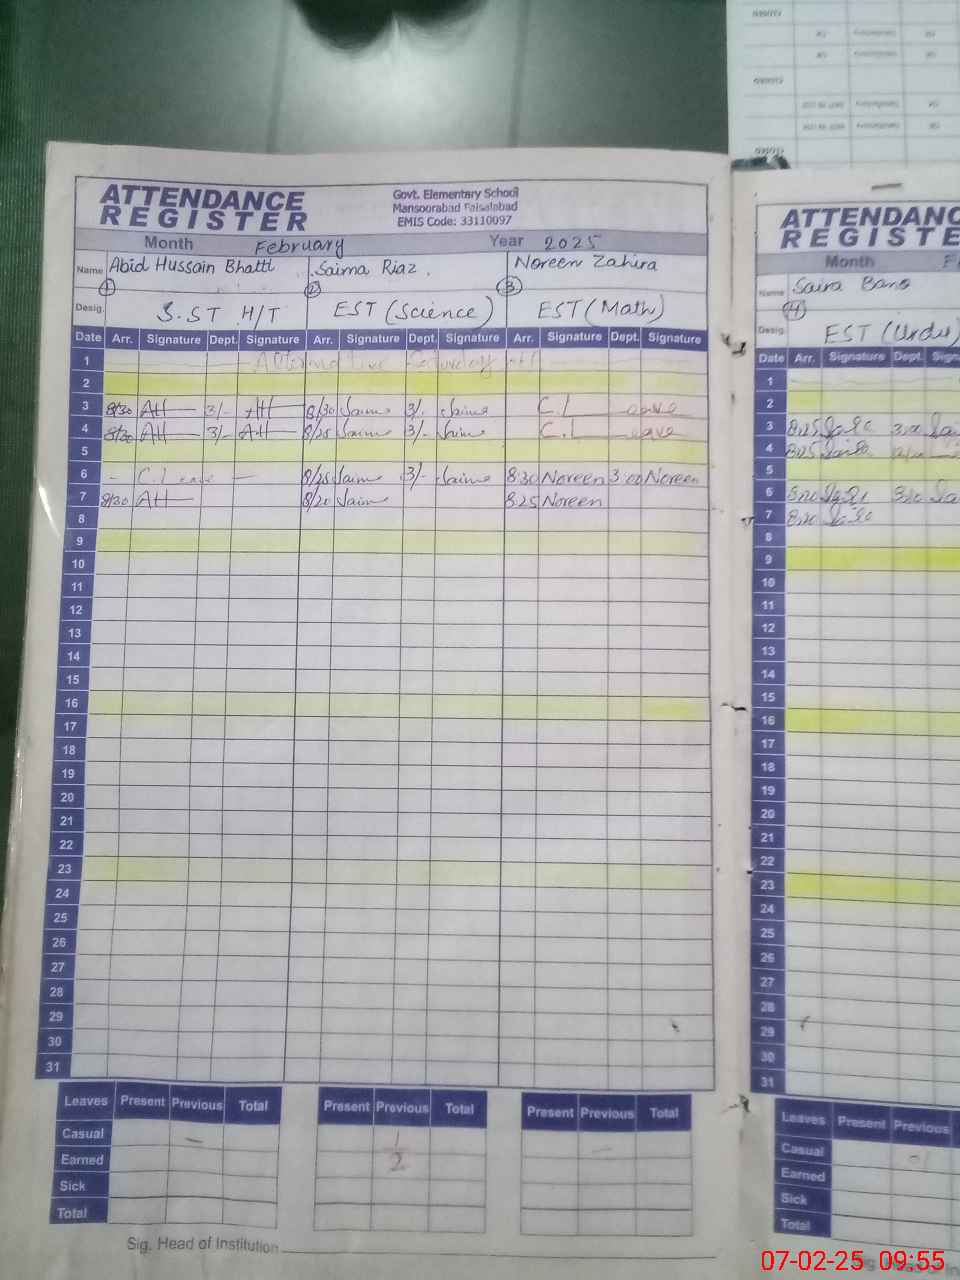 ATTENDANCE REGISTER
Govt. Elementary School
Mansoorabad Faisalabad
EMIS Code: 33110097
Month February Year 2025
Name Abid Hussain Bhatti Saima Riaz Noreen Zahira
1 2 3
Desig. S.ST H/T EST (Science) EST (Math)
Date Arr. Signature Dept. Signature Arr. Signature Dept. Signature Arr. Signature Dept. Signature
1 Saturday
2
3 8/30 AH 3/- AH 8/30 Saima 3/- Saima C.L Leave
4 8/30 AH 3/- AH 8/25 Saima 3/- Saima C.L Leave
5
6 - C.L - 8/25 Saima 3/- Saima 8:30 Noreen 3:00 Noreen
7 8/30 AH 8/20 Saima 8:25 Noreen
8
9
10
11
12
13
14
15
16
17
18
19
20
21
22
23
24
25
26
27
28
29
30
31
Leaves Present Previous Total Present Previous Total Present Previous Total
Casual - 1 -
Earned 2
Sick
Total
Sig. Head of Institution
ATTENDANC
REGISTE
Month F
Name Saira Bano
4
Desig. EST (Urdu)
Date Arr. Signature Dept. Sign
1
2
3 8:25
4 8:25
5
6
7 8:20
8
9
10
11
12
13
14
15
16
17
18
19
20
21
22
23
24
25
26
27
28
29
30
31
Leaves Present Previous
Casual 01
Earned
Sick
Total
Sig. Head of In
07-02-25 09:55